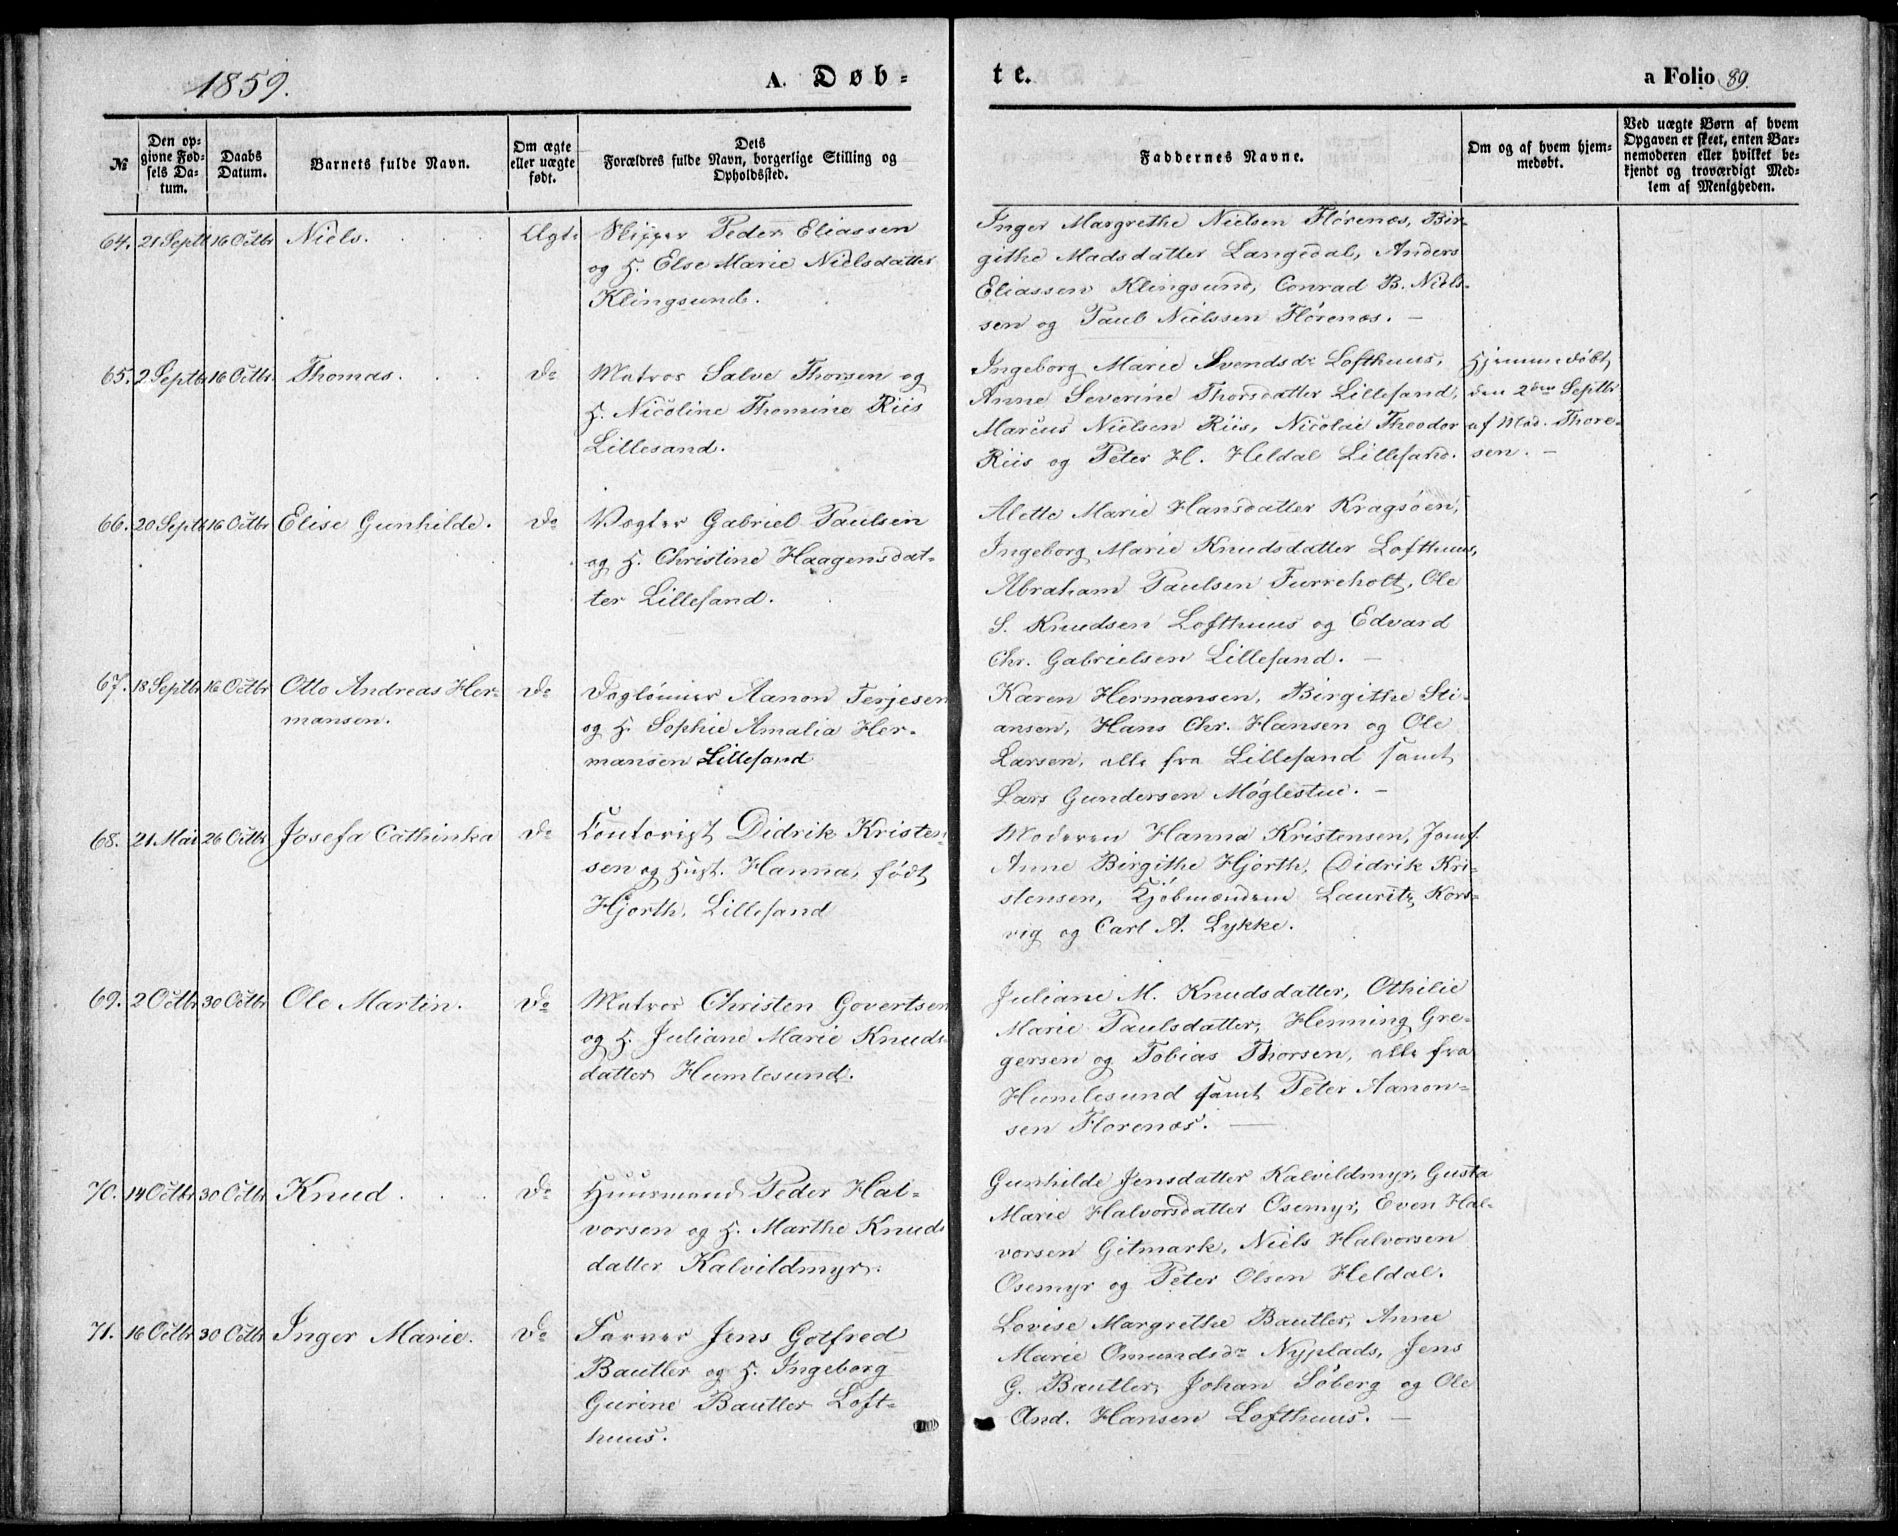 1859.
A. Døb-
te.
a Folio 89.
№
Den op-
givne Fød-
sels Da-
tum.
Daabs
Datum.
Barnets fulde Navn.
Om ægte
eller uægte
født.
Dets
Forældres fulde Navn, borgerlige Stilling og
Opholdssted.
Faddernes Navne.
Om og af hvem hjem-
medøbt.
Ved uægte Børn af hvem
Opgaven er skeet, enten Bar-
nemoderen eller hvilket be-
kjendt og troværdigt Med-
lem af Menigheden.
64. 21 Septbr 16 Octbr Niels. Ægte Skipper Peder Eliassen
og H. Else Marie Nielsdatter
Klingsund.
Inger Margrethe Nielsen Flørenæs, Bir-
githe Madsdatter Langedal, Anders
Eliassen Klingsund, Conrad B. Niels-
sen og Paul Nielssen Flørenæs. —
65. 2 Septbr 16 Octbr. Thomas. Do Matros Salve Thorsen og
H. Nicoline Thomine Riis
Lillesand.
Ingeborg Marie Svendsdr Lofthuus,
Anne Severine Thorsdatter Lillesand,
Marcus Nielsen Riis, Nicolai Theodor
Riis og Peter H. Heldal Lillesand.
Hjemmedøbt
den 2den Septbr
af Mad. Thore-
sen. —
66. 20 Septbr 16 Octbr Elise Gunhilde. Do Vægter Gabriel Paulsen
og H. Christine Haagensdat-
ter Lillesand.
Alette Marie Hansdatter Kragsøen,
Ingeborg Marie Knudsdatter Lofthuus,
Abraham Paulsen Furreholt, Ole
S. Knudsen Lofthuus og Edvard
Chr. Gabrielsen Lillesand. —
67. 18 Septbr 16 Octbr Otto Andreas Her-
mansen.
Do Daglønner Aanon Terjesen
og H. Sophie Amalia Her-
mansen Lillesand
Karen Hermansen, Birgithe Sti-
ansen, Hans Chr. Hansen og Ole
Larsen, alle fra Lillesand samt
Lars Gundersen Møglestue. —
68. 21. Mai 26 Octbr Josefa Cathinka Do Contorist Didrik Kristen-
sen og Hust. Hanna, født
Hjorth, Lillesand
Moderen Hanna Kristensen, Jomf.
Anne Birgithe Hjorth, Didrik Kri-
stensen, Kjøbmændene Lauritz Kors-
vig og Carl A. Lykke.
69. 2 Octbr 30 Octbr Ole Martin. Do Matros Christen Govertsen
og H. Juliane Marie Knuds-
datter Humlesund.
Juliane M. Knudsdatter, Othilie
Marie Paulsdatter, Henning Gre-
gersen og Tobias Thorsen, alle fra
Humlesund samt Peter Aanon-
sen Flørenæs. —
70. 14 Octbr 30 Octbr Knud Do Huusmand Peder Hal-
vorsen og H. Marthe Knuds
datter Kalvildmyr.
Gunhilde Jensdatter Kalvildmyr, Gusta
Marie Halvorsdatter Osemyr, Even Hal-
vorsen Gitmark, Niels Halvorsen
Osemyr og Peter Olsen Heldal.
71. 16 Octbr 30 Octbr Inger Marie. Do Farver Jens Gotfred
Bautler og H. Ingeborg
Gurine Bautler Loft-
huus.
Lovise Margrethe Bautler, Anne
Marie Omundsdr Nyplads, Jens
G. Bautler, Johan Søberg og Ole
And. Hansen Lofthuus. —